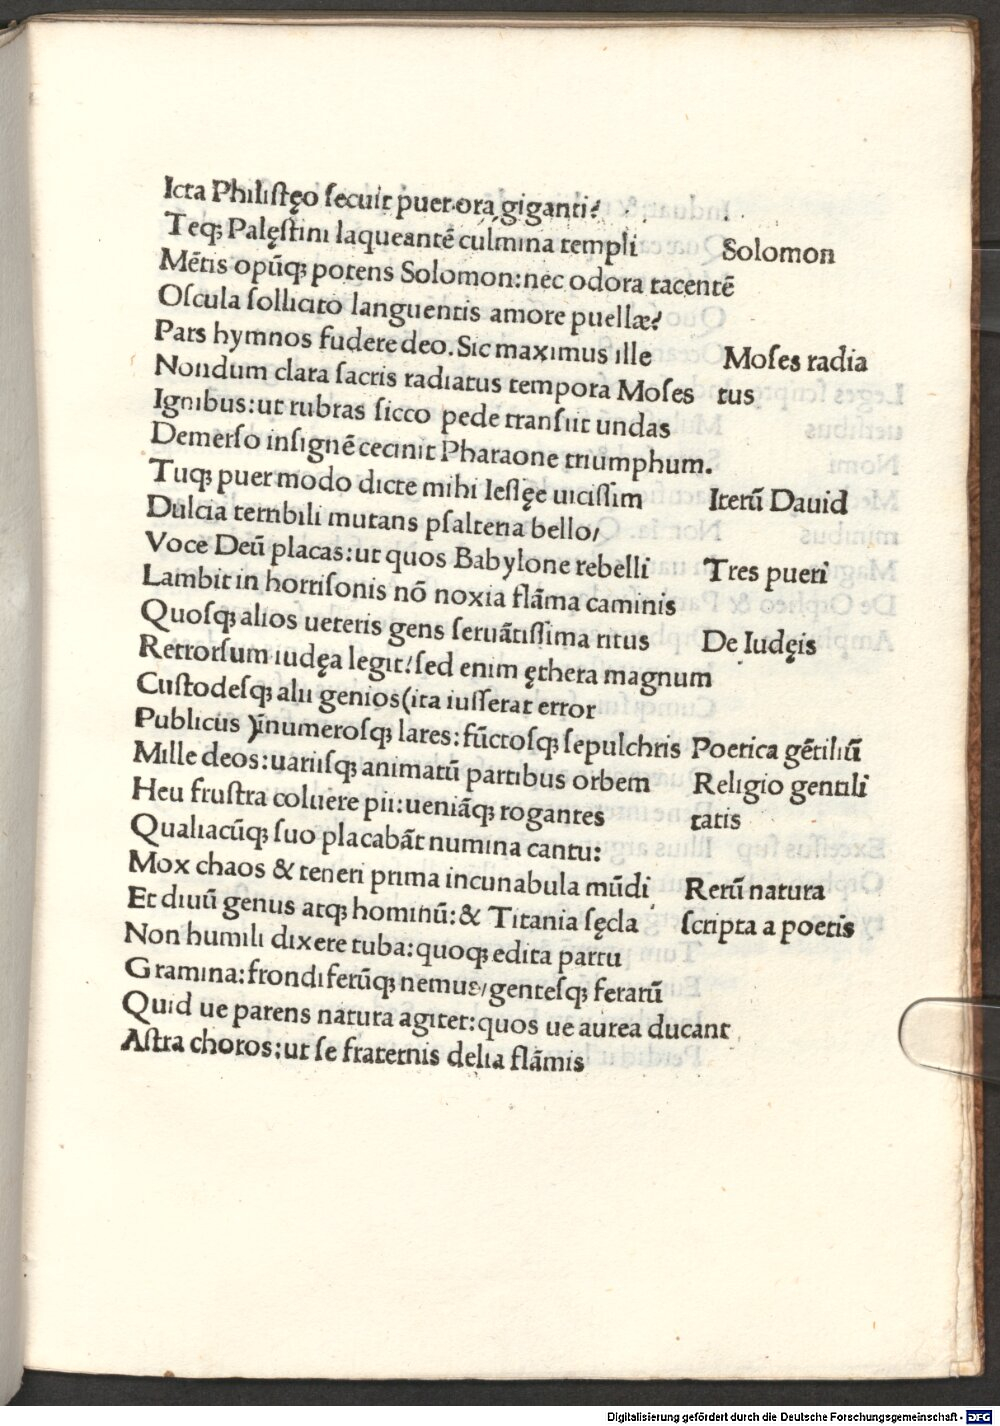 Icta Philistęo secuit puer ora giganti?
Teq; Palęstini laqueantē culmina templi Solomon
Mētis opūq; potens Solomon: nec odora tacentē
Oscula sollicito languentis amore puellæ?
Pars hymnos fudere deo. Sic maximus ille Moses radia
Nondum clara sacris radiatus tempora Moses tus
Ignibus: ut rubras sicco pede transiit undas
Demerso insignē cecinit Pharaone triumphum.
Tuq; puer modo dicte mihi Iessęe uicissim Iterū Dauid
Dulcia terribili mutans psalteria bello/
Voce Deū placas: ut quos Babylone rebelli Tres pueri
Lambit in horrisonis nō noxia flāma caminis
Quosq; alios ueteris gens seruātissima ritus De Iudęis
Retrorsum iudęa legit/ sed enim ęthera magnum
Custodesq; alii genios (ita iusserat error
Publicus) īnumerosq; lares: fūctosq; sepulchris Poetica gētiliū
Mille deos: uariisq; animatū partibus orbem Religio gentili
Heu frustra coluere pii: ueniāq; rogantes tatis
Qualiacūq; suo placabāt numina cantu:
Mox chaos & teneri prima incunabula mūdi Rerū natura
Et diuū genus atq; hominū: & Titania sęcla scripta a poetis
Non humili dixere tuba: quoq; edita partu
Gramina: frondiferūq; nemus/ gentesq; ferarū
Quid ue parens natura agitet: quos ue aurea ducant
Astra choros: ut se fraternis delia flāmis
Digitalisierung gefördert durch die Deutsche Forschungsgemeinschaft - DFG